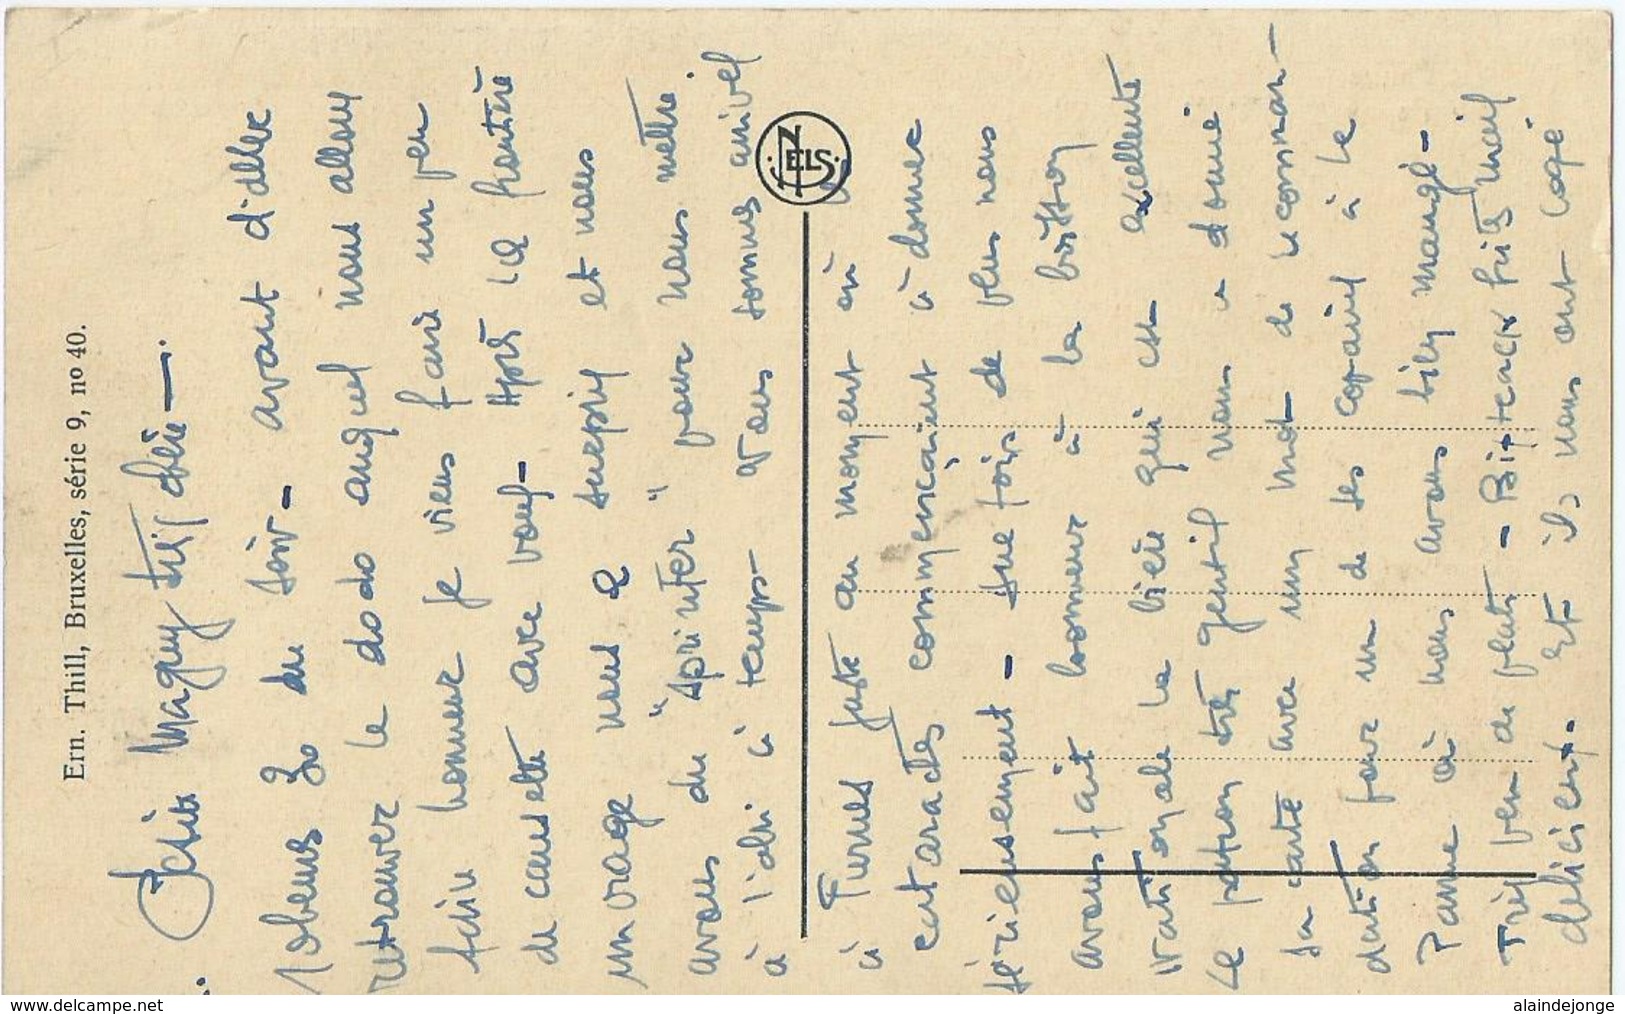 Ern. Thill, Bruxelles, série 9, no 40.
Petite Maguy très chérie —.
10 heures 30 du soir — avant d'aller
retrouver le dodo auquel nous allons
faire honneur je viens faire un peu
de causette avec vous — Après la frontière
un orage nous a surpris et nous
avons du "sprinter" pour nous mettre
à l'abri à temps — Nous sommes arrivés
NELS
à Furnes juste au moment où les
cataractes commençaient à donner
sérieusement — une fois de plus nous
avons fait honneur à la boisson
nationale la bière qui est excellente
Le patron très gentil nous a donné
sa carte avec un mot de recomman-
dation pour un de ses copains à la
Panne où nous avons bien mangé —
Très peu de plats — Bifteack frits mais
délicieux. Et ils nous ont logé
www.delcampe.net
alaindejonge